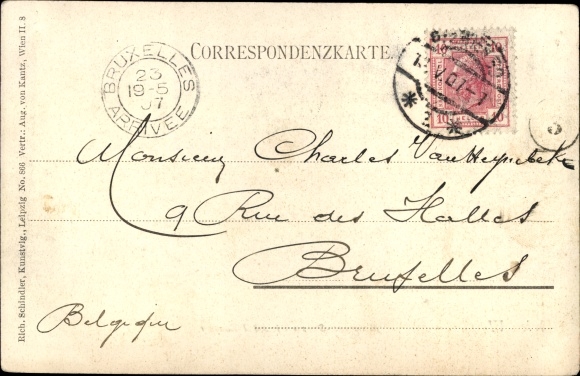 CORRESPONDENZKARTE.
BRUXELLES
23
19-5
07
ARRIVÉE
10
10
5
Monsieur Charles
9 Rue des Halles
Bruxelles
Belgique
Rich. Schindler, Kunstvlg., Leipzig No. 866 Vertr.: Aug. von Kautz, Wien II. 8